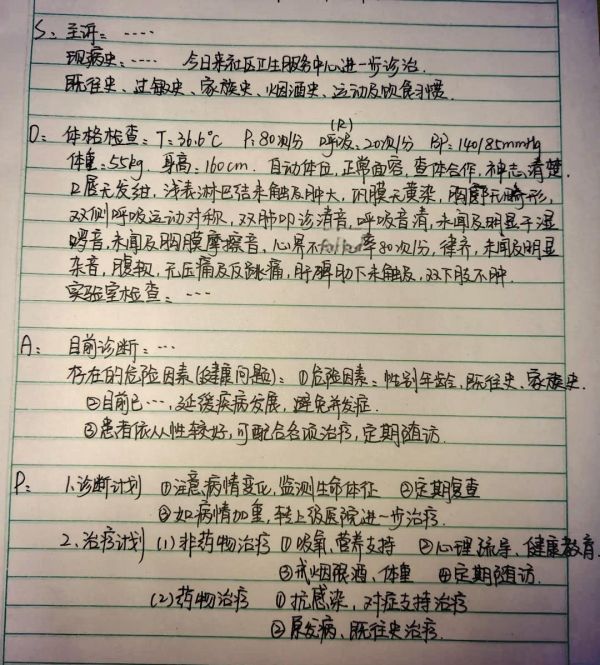 S: 主诉: ....
现病史: .... 今日来社区卫生服务中心进一步诊治.
既往史、过敏史、家族史、烟酒史、运动及饮食习惯.
O: 体格检查: T: 36.6℃ P: 80次/分 呼吸(R): 20次/分 BP: 140/85mmHg
体重: 55kg, 身高: 160cm. 自动体位, 正常面容, 查体合作, 神志清楚.
口唇无发绀, 浅表淋巴结未触及肿大, 巩膜无黄染, 胸廓无畸形,
双侧呼吸运动对称, 双肺叩诊清音, 呼吸音清, 未闻及明显干湿
啰音, 未闻及胸膜摩擦音, 心界不 率80次/分, 律齐, 未闻及明显
杂音, 腹软, 无压痛及反跳痛, 肝脾肋下未触及, 双下肢不肿.
实验室检查: ....
A: 目前诊断: ...
存在的危险因素(健康问题): ①危险因素: 性别年龄、既往史、家族史.
②目前已..., 延缓疾病发展, 避免并发症.
③患者依从性较好, 可配合各项治疗, 定期随访.
P: 1.诊断计划 ①注意病情变化, 监测生命体征 ②定期复查
③如病情加重, 转上级医院进一步治疗.
2.治疗计划 (1)非药物治疗 ①吸氧、营养支持 ②心理疏导、健康教育.
③戒烟限酒、体重 ④定期随访.
(2)药物治疗 ①抗感染, 对症支持治疗
②原发病、既往史治疗.